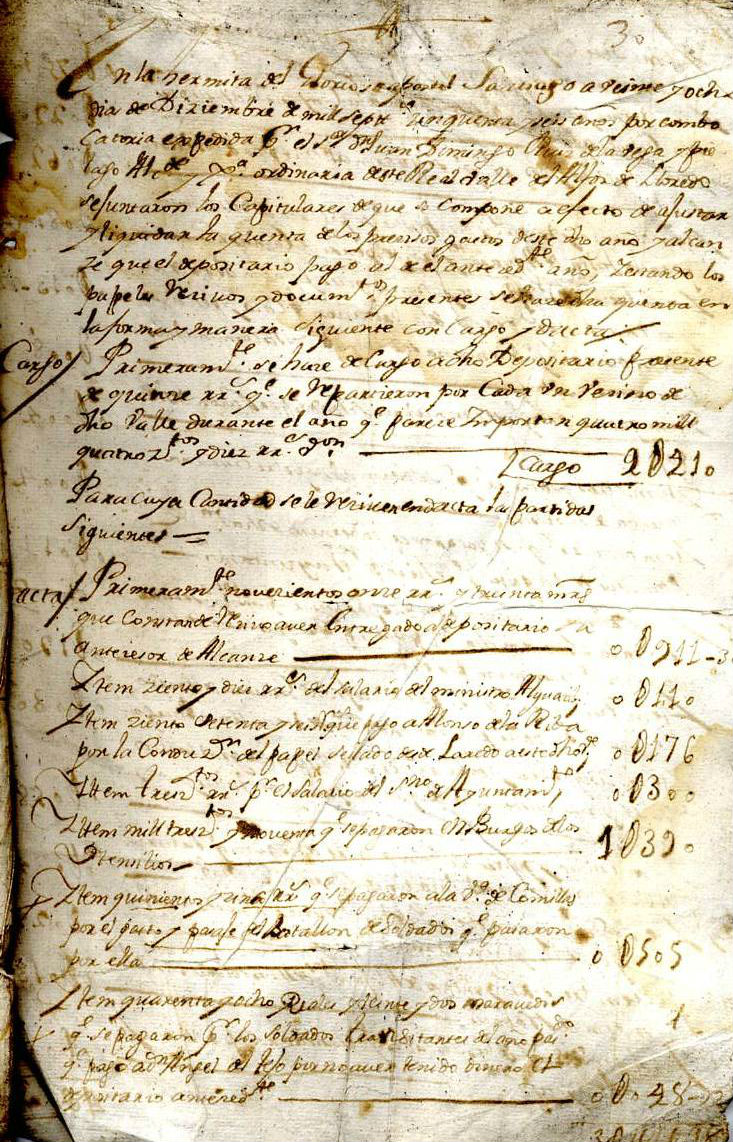 30
En la hermita del Glorioso apostol Santiago a veinte y ocho
dias de Diziembre de mill septs. cinquenta y seis años por combo
catoria expedida pr. el Sr. Dn. Juan Domingo Ruiz de la Vega y
Alcde. y ordinaria deste Real Valle del Alfoz de Lloredo
se juntaron los Capitulares de que se Compone a efecto de ajustar
y liquidar la quenta de los prensos gastos deste dho año y alcan
ze que el depositario pago al de el antezedte. año, Y estando los
papeles Rezivos y documtos. presentes se haze dha quenta en
la forma y manera Siguiente con Cargo y dacta
Cargo / Primeramte. se haze de Cargo a dho Depositario
de quinze rrs. qe. se Repartieron por Cada un Vezino de
dho Valle durante el año qe. pareze Importan quatro mill
quatroztos. y diez rrs. Von.
Cargo 4U410
Para cuya Cantidad se le Reziven en dacta las partidas
Siguientes =
Dacta / Primeramte. novezientos onze rrs. y treinta mrs
que Constan de Rezivo aver Entregado a depositario
anterior de Alcanze 0U911-30
Ytem ziento y diez rrs. del salario del ministro Alguazil 0U110
Ytem ziento setenta y seis que pago a Alonso de la Riba
por la Conduzn. del papel sellado desde Laredo a este dho 0U176
Ytem treszto. rrs. pr. el Salario del Sno. de Ayuntamto. 0U300
Ytem mill tresztos. y noventa qe. se pagaron En Burgos de los
Utensilios 1U390
Ytem quinientos y cinco rrs. qe. se pagaron a la Va. de Comillas
por el gasto y del Batallon de Soldados qe. pasaron
por ella 0U505
Ytem quarenta y ocho Reales y veinte y dos maravedis
qe. se pagaron pr. los soldados transitantes del año pasdo.
qe. pago a Dn. Angel del Tejo por no aver tenido dinero el
depositario antezedte. 0U048-22